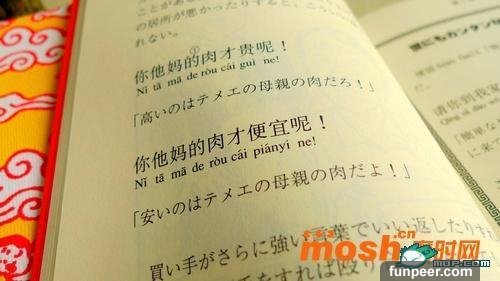 ことがあ
の居所が悪かったりすると、こ
れない。
你他妈的肉才贵呢！
Nǐ tā mā de ròu cái guì ne!
「高いのはテメエの母親の肉だろ！」
你他妈的肉才便宜呢！
Nǐ tā mā de ròu cái piányi ne!
「安いのはテメエの母親の肉だよ！」
買い手がさらに強い言葉でいい返したりす
をすれば殴り
にもカンタン
请你到我家
「簡単な
に来て
mosh.cn
funpeer.com